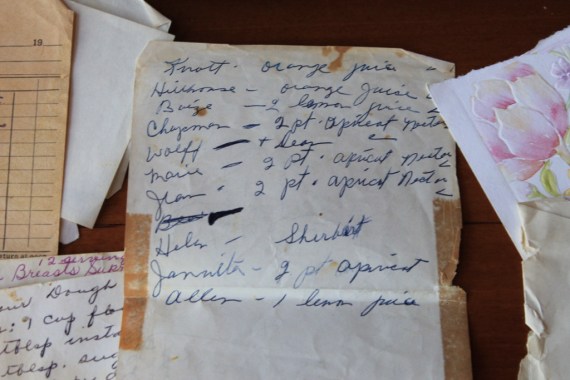 19
Knott - orange juice
Hillhouse - orange Juice
Boize - 2 lemon juice
Chapman - 2 pt. apricot nectar
Wolff - + lem
Marie - 2 pt. apricot Nectar
Jean - 2 pt. apricot Nectar
Helen - Shirbert
Jannita - 2 pt apricot
Allen - 1 lemon juice
12 serving
Breasts Sup
Dough
: 9 cup flo
tblsp insta
tblsp. sug